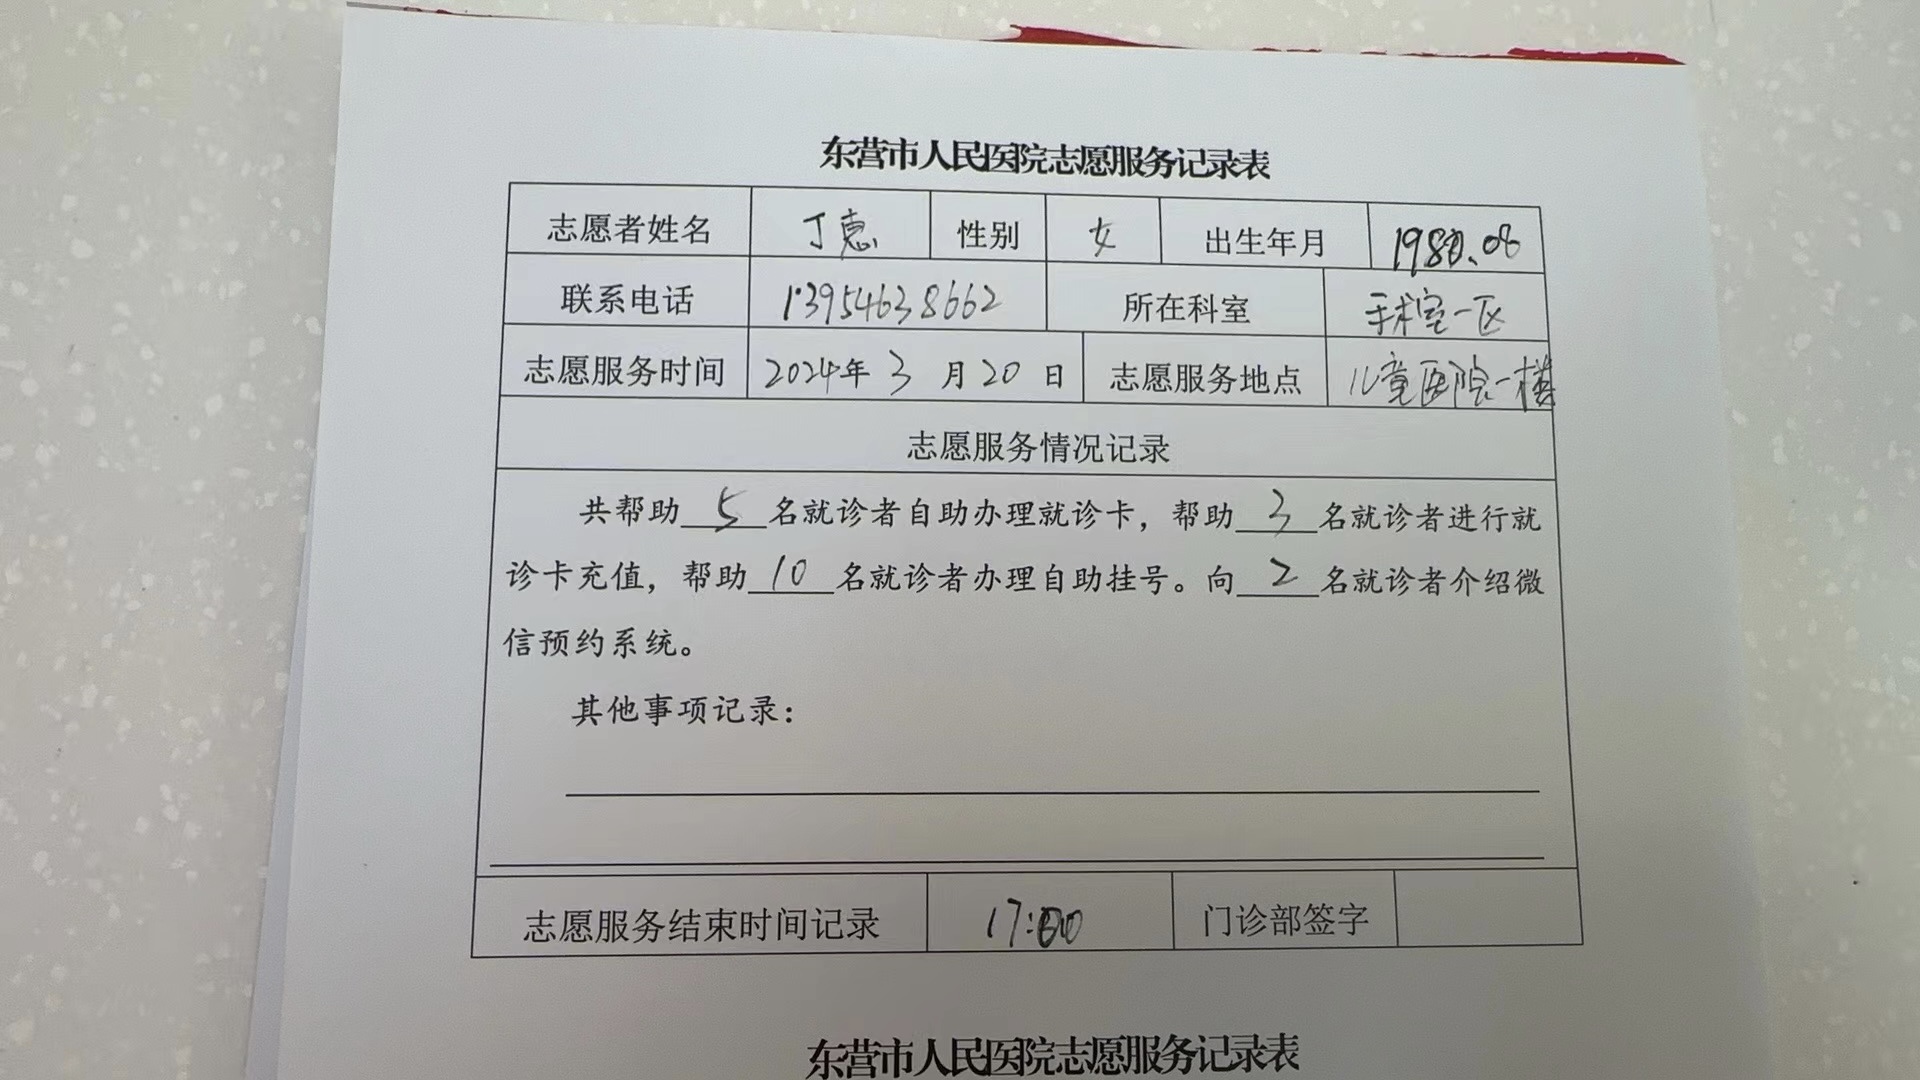 东营市人民医院志愿服务记录表
志愿者姓名 丁惠 性别 女 出生年月 1980.08
联系电话 13954638662 所在科室 手术室一区
志愿服务时间 2024年3月20日 志愿服务地点 儿童医院一楼
志愿服务情况记录
共帮助5名就诊者自助办理就诊卡，帮助3名就诊者进行就
诊卡充值，帮助10名就诊者办理自助挂号。向2名就诊者介绍微
信预约系统。
其他事项记录：
志愿服务结束时间记录 17:00 门诊部签字
东营市人民医院志愿服务记录表